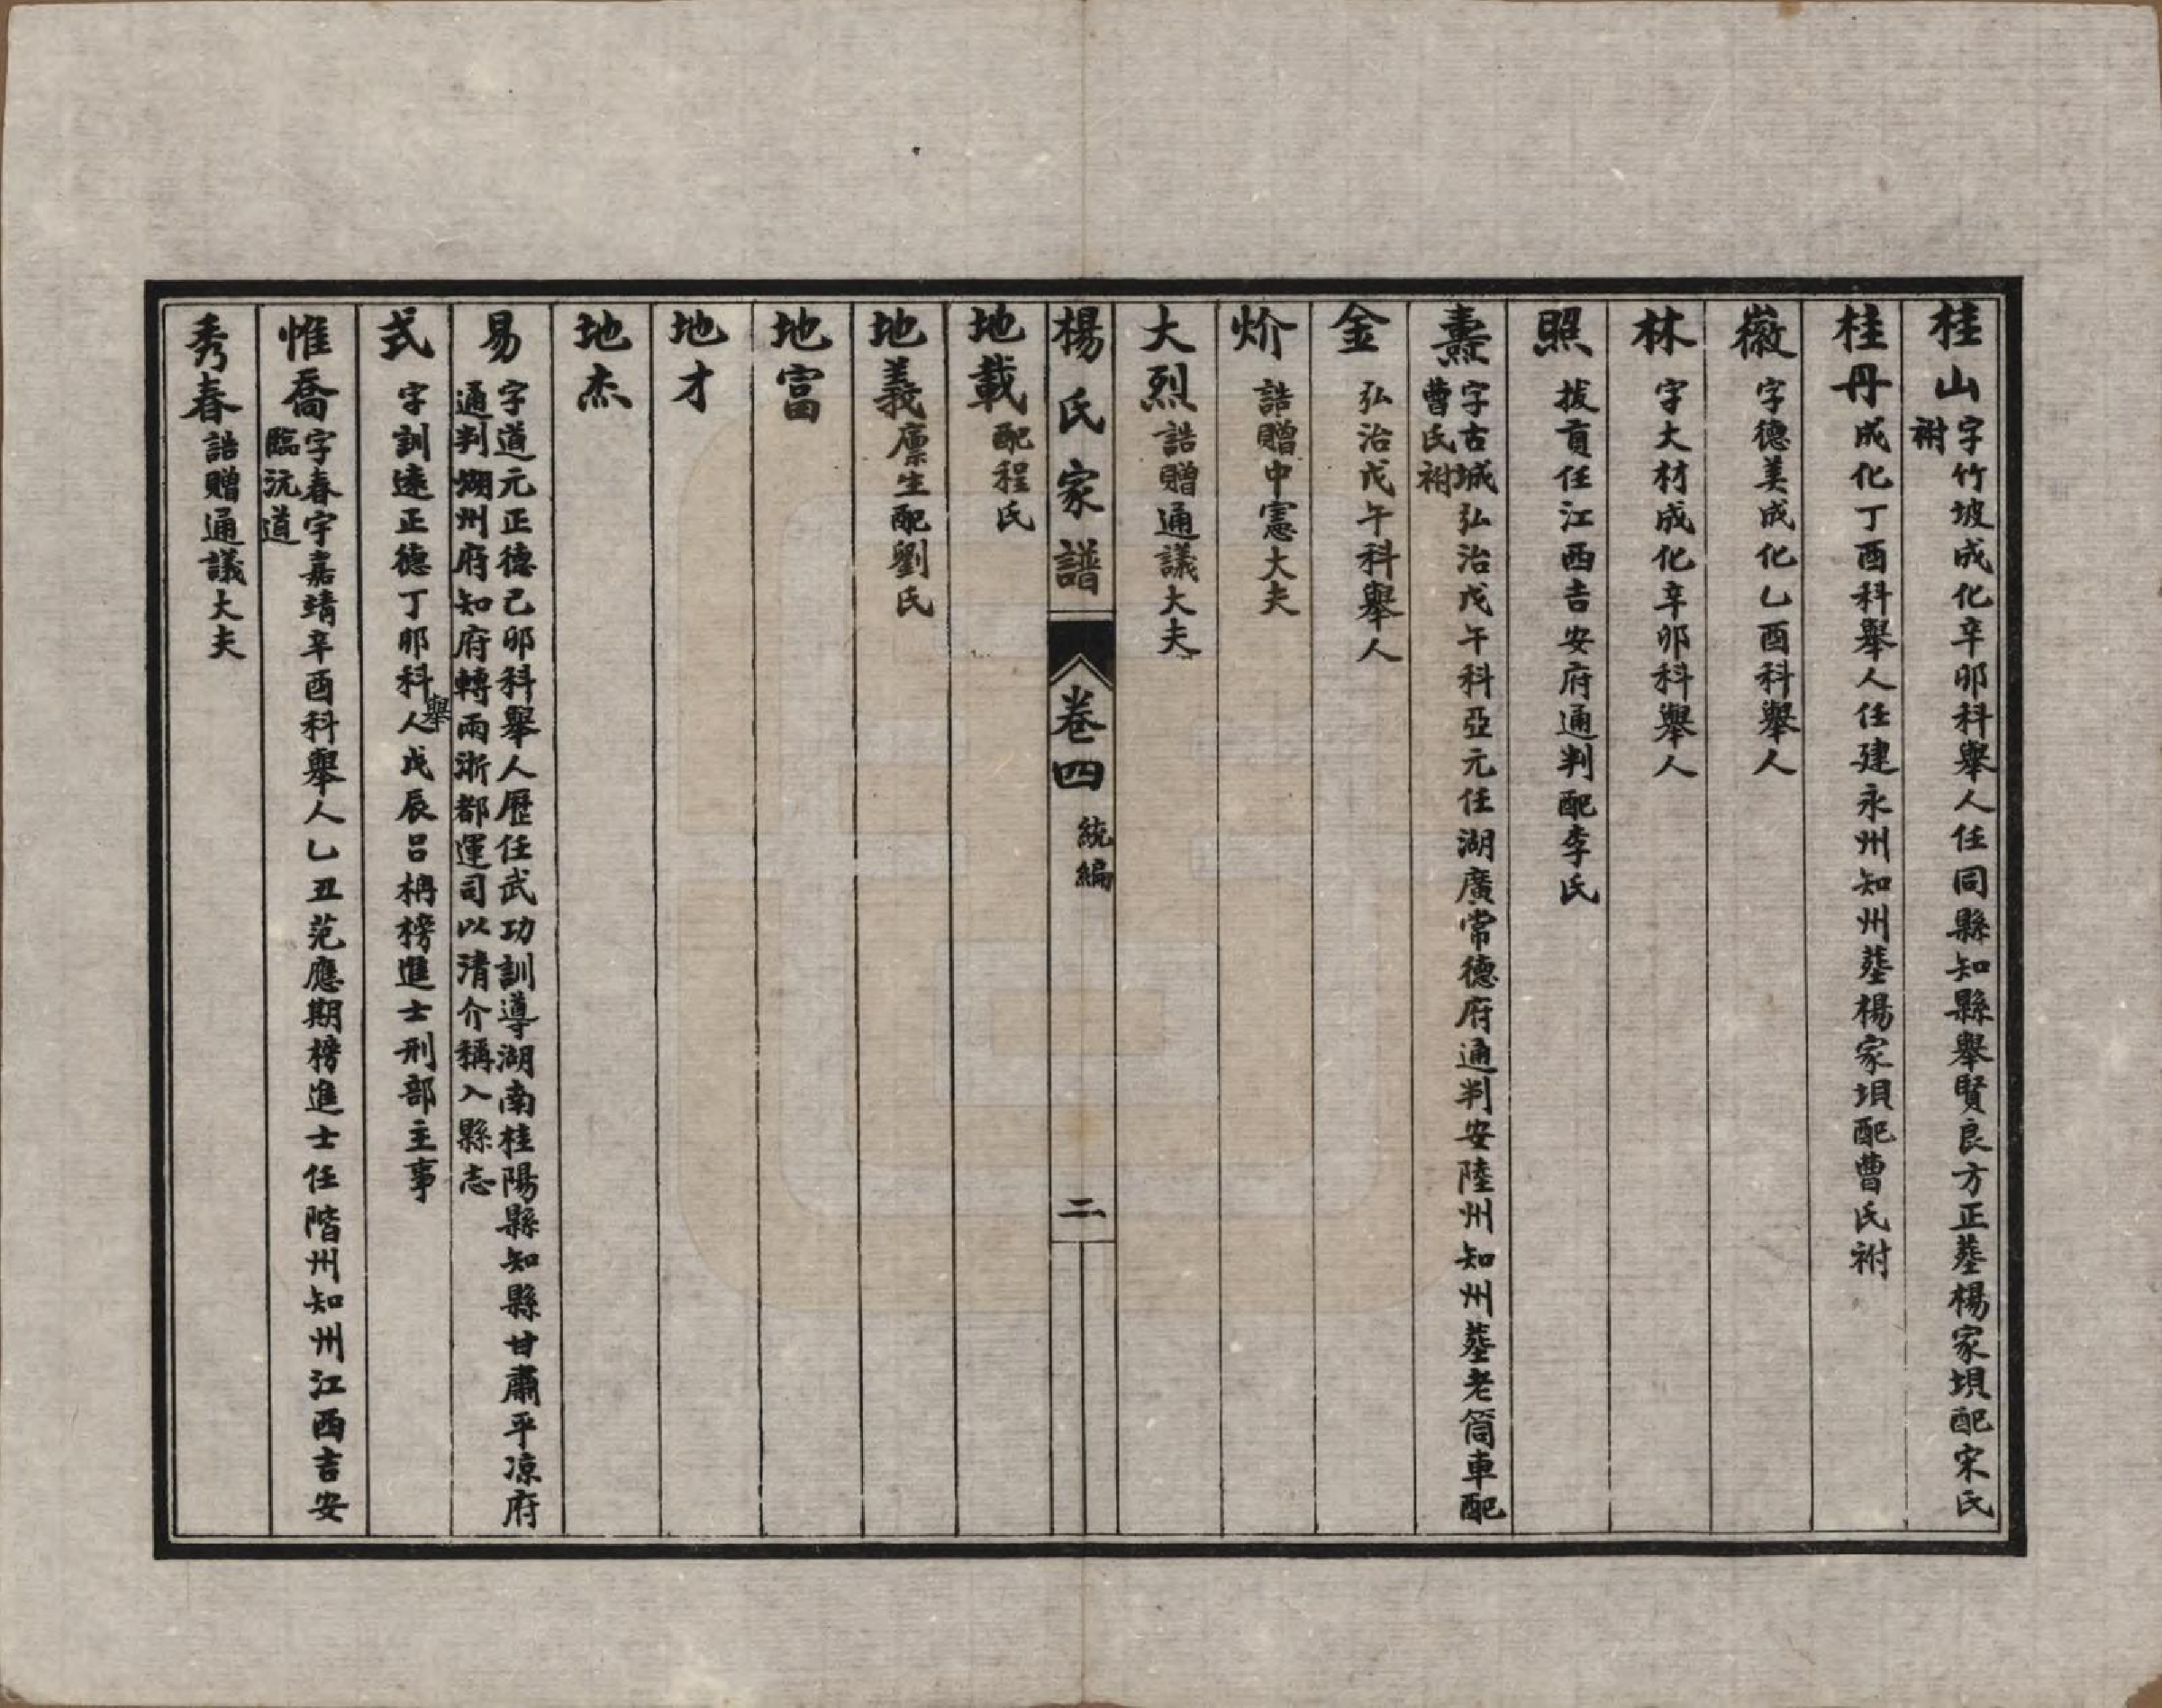 桂山 字竹坡成化辛卯科舉人任同縣知縣舉賢良方正塟楊家垻配宋氏
祔
桂丹 成化丁酉科舉人任建永州知州塟楊家垻配曹氏祔
徽 字德美成化乙酉科舉人
林 字大材成化辛卯科舉人
照 拔貢任江西吉安府通判配李氏
燾 字古城弘治戊午科亞元任湖廣常德府通判安陸州知州塟老筒車配
曹氏祔
金 弘治戊午科舉人
炌 誥贈中憲大夫
大烈 誥贈通議大夫
楊氏家譜 卷四 統編 二
地載 配程氏
地義 廪生配劉氏
地富
地才
地杰
易 字道元正德己卯科舉人歷任武功訓導湖南桂陽縣知縣甘肅平凉府
通判湖州府知府轉兩浙都運司以清介稱入縣志
式 字訓逺正德丁卯科舉人戊辰呂柟榜進士刑部主事
惟喬 字春宇嘉靖辛酉科舉人乙丑范應期榜進士任階州知州江西吉安
臨沅道
秀春 誥贈通議大夫